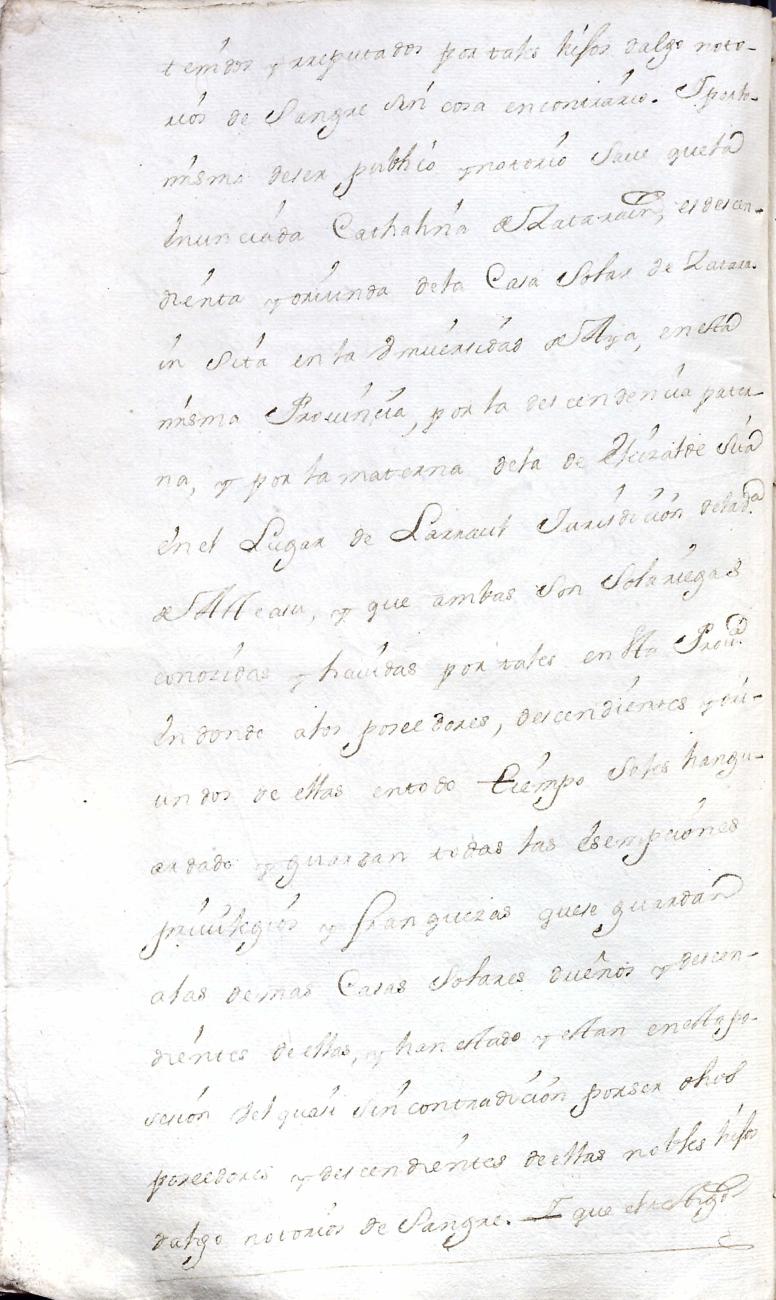 tenidos y rreputados por tales hijos dalgo noto-
rios de Sangre sin cosa encontrario. I porlo-
mismo deser publico ynotorio Save quela
enunciada Cathalina de Zatarain, es descen-
dienta yoriunda dela Casa Solar de Zatara-
in Sita enla Vniversidad de Aya, enesta
misma Provincia, por la descendencia pater-
na, y por la materna dela de Elizalde Sita
enel Lugar de Larraul Jurisdicion delad.ª
de Asteasu, y que ambas son Solariegas
conozidas y havidas por tales en Sta Prov.ª
en donde alos poseedores, descendientes yori-
undos de ellas entodo tiempo Seles hangu-
ardado y guardan todas las esempciones
privilegios y franquezas quese guardan
alas demas Casas Solares dueños y descen-
dientes deellas, y han estado y estan enesta po-
sesion vel quasi sin contradicion porser dhos
poseedores y descendientes deellas nobles hijos
dalgo notorios de Sangre. I que el testigo